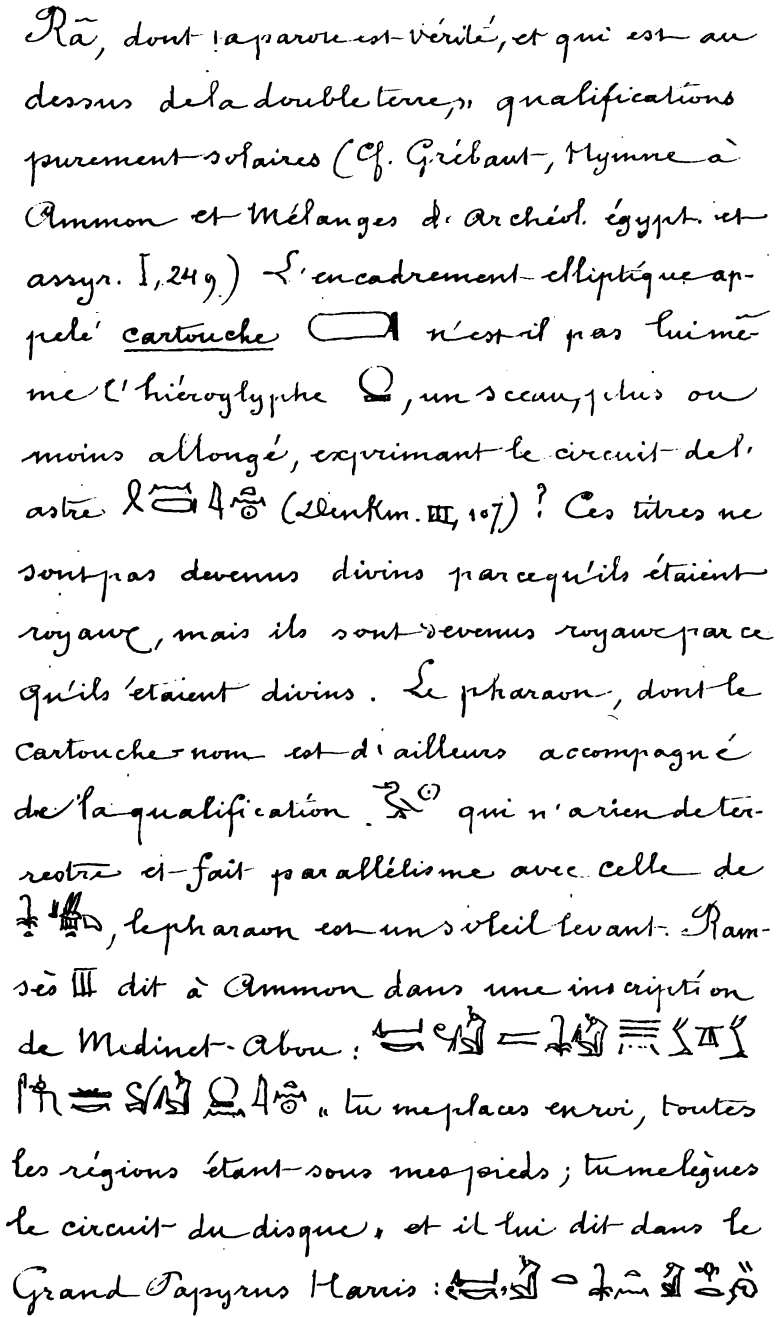 Râ, dont la parole est vérité, et qui est au
dessus de la double terre,» qualifications
purement solaires (Cf. Grébaut, Hymne à
Ammon et Mélanges d'Archéol. égypt. et
assyr. I, 249) L'encadrement elliptique ap-
pelé cartouche n'est-il pas lui mê-
me l'hiéroglyphe , un sceau, plus ou
moins allongé, exprimant le circuit de l'
astre (Denkm. III, 107) ? Ces titres ne
sont pas devenus divins parcequ'ils étaient
royaux, mais ils sont devenus royaux par ce
qu'ils étaient divins. Le pharaon, dont le
cartouche-nom est d'ailleurs accompagné
de la qualification qui n'a rien de ter-
restre et fait parallélisme avec celle de
, le pharaon est un soleil levant. Ram-
sès III dit à Ammon dans une inscription
de Médinet-Abou :
« tu me places en roi, toutes
les régions étant sous mes pieds ; tu me lègues
le circuit du disque » et il lui dit dans le
Grand Papyrus Harris :